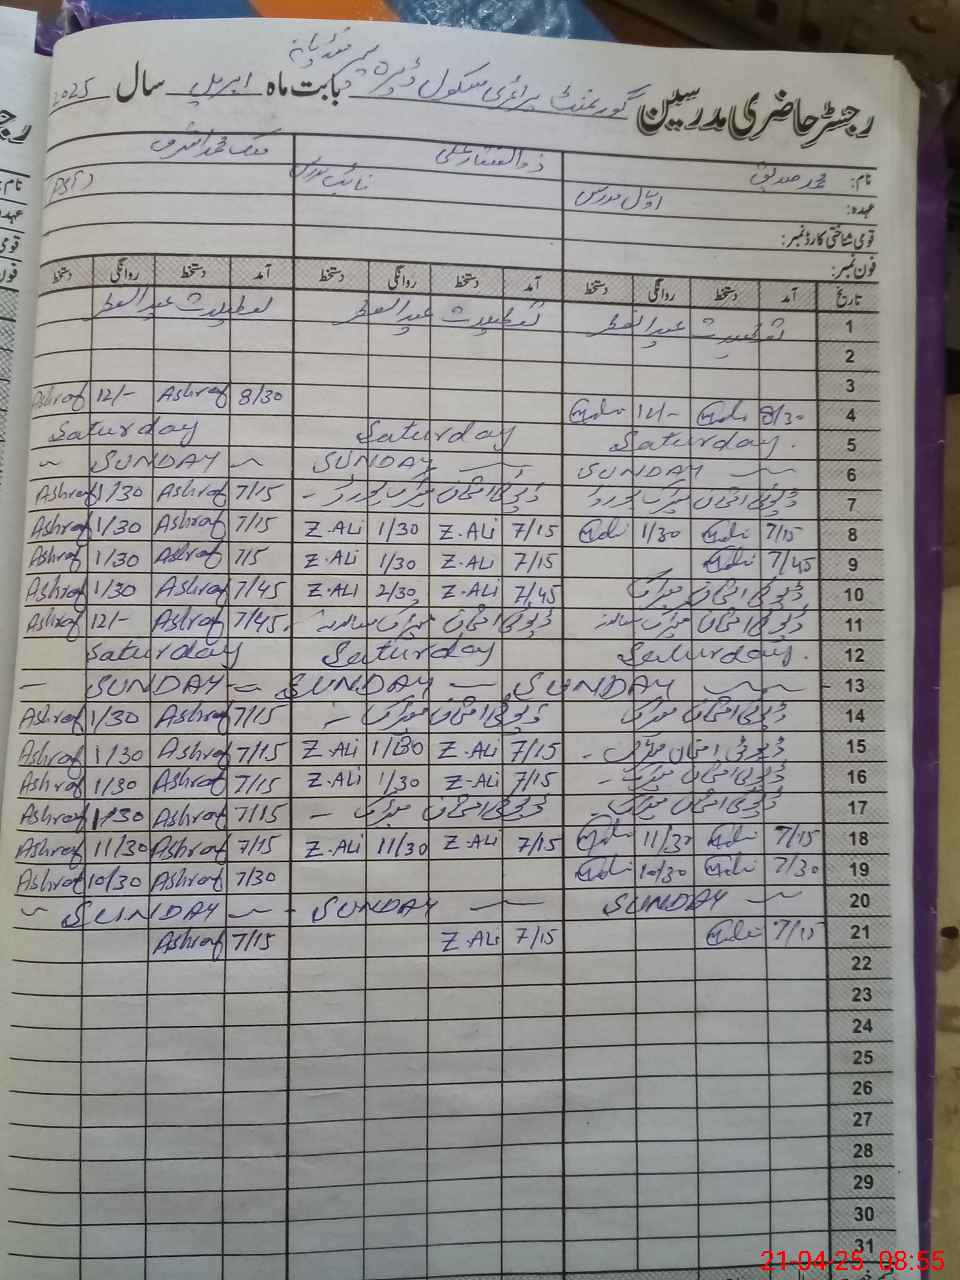 رجسٹر حاضری مدرسین گورنمنٹ پرائمری سکول ڈیرہ بابت ماہ اپریل سال 2025
نام: محمد صدیق ذوالفقار علی ملک محمد اشرف
عہدہ: اول مدرس نائب مدرس PST
قومی شناختی کارڈ نمبر:
فون نمبر:
تاریخ آمد دستخط روانگی دستخط آمد دستخط روانگی دستخط آمد دستخط روانگی دستخط
1 تعطیلات عیدالفطر تعطیلات عیدالفطر تعطیلات عیدالفطر
2
3
Ashraf 12/- Ashraf 8/30 12/- 8/30 4
Saturday Saturday Saturday. 5
SUNDAY SUNDAY SUNDAY 6
Ashraf 1/30 Ashraf 7/15 ڈیوٹی امتحان ڈیوٹی امتحان 7
Ashraf 1/30 Ashraf 7/15 Z.ALi 1/30 Z.ALi 7/15 1/30 7/15 8
Ashraf 1/30 Ashraf 7/5 Z.ALi 1/30 Z.ALi 7/15 7/45 9
Ashraf 1/30 Ashraf 7/45 Z.ALi 2/30 Z.ALi 7/45 ڈیوٹی امتحان میٹرک 10
Ashraf 12/- Ashraf 7/45 ڈیوٹی امتحان میٹرک سالانہ ڈیوٹی امتحان میٹرک سالانہ 11
Saturday Saturday Saturday. 12
SUNDAY SUNDAY SUNDAY 13
Ashraf 1/30 Ashraf 7/15 ڈیوٹی امتحان میٹرک ڈیوٹی امتحان میٹرک 14
Ashraf 1/30 Ashraf 7/15 Z.ALi 1/30 Z.ALi 7/15 ڈیوٹی امتحان میٹرک 15
Ashraf 1/30 Ashraf 7/15 Z.ALi 1/30 Z-ALi 7/15 ڈیوٹی امتحان میٹرک 16
Ashraf 1/30 Ashraf 7/15 ڈیوٹی امتحان میٹرک ڈیوٹی امتحان میٹرک 17
Ashraf 11/30 Ashraf 7/15 Z.ALi 11/30 Z.ALi 7/15 11/30 7/15 18
Ashraf 10/30 Ashraf 7/30 10/30 7/30 19
SUNDAY SUNDAY SUNDAY 20
Ashraf 7/15 Z.ALi 7/15 7/15 21
22
23
24
25
26
27
28
29
30
31
21-04-25 08:55